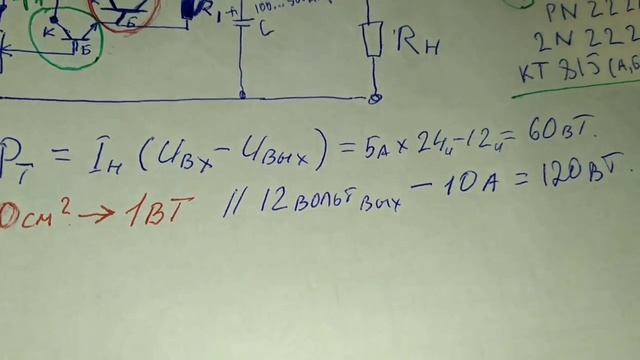 К
Б
Б
R1
+
C
RН
PN222
2N222
КТ 815 (А,Б
PТ = IН (UВХ – UВЫХ) = 5А х 24и – 12и = 60ВТ.
0см² → 1ВТ // 12 ВОЛЬТ ВЫХ – 10А = 120ВТ.